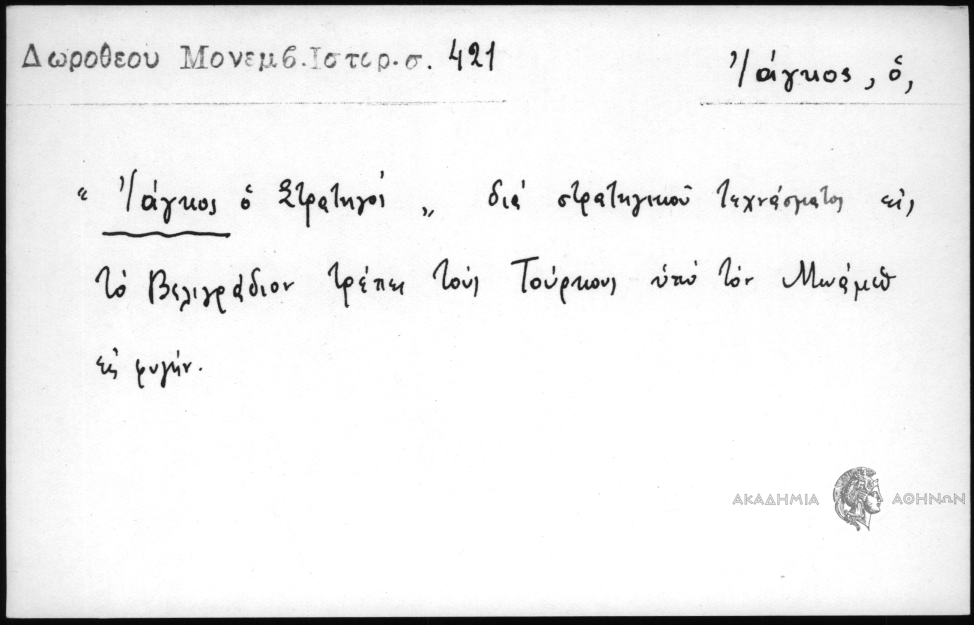 Δωροθεου Μονεμβ. Ιστορ. σ. 421
Ἰάγκος, ὁ,
“ Ἰάγκος ὁ Στρατηγός „ διά στρατηγικοῦ τεχνάσματος εἰς
τὸ Βελιγράδιον τρέπει τούς Τούρκους ὑπό τόν Μωάμεθ
εἰς φυγήν.
ΑΚΑΔΗΜΙΑ ΑΘΗΝΩΝ